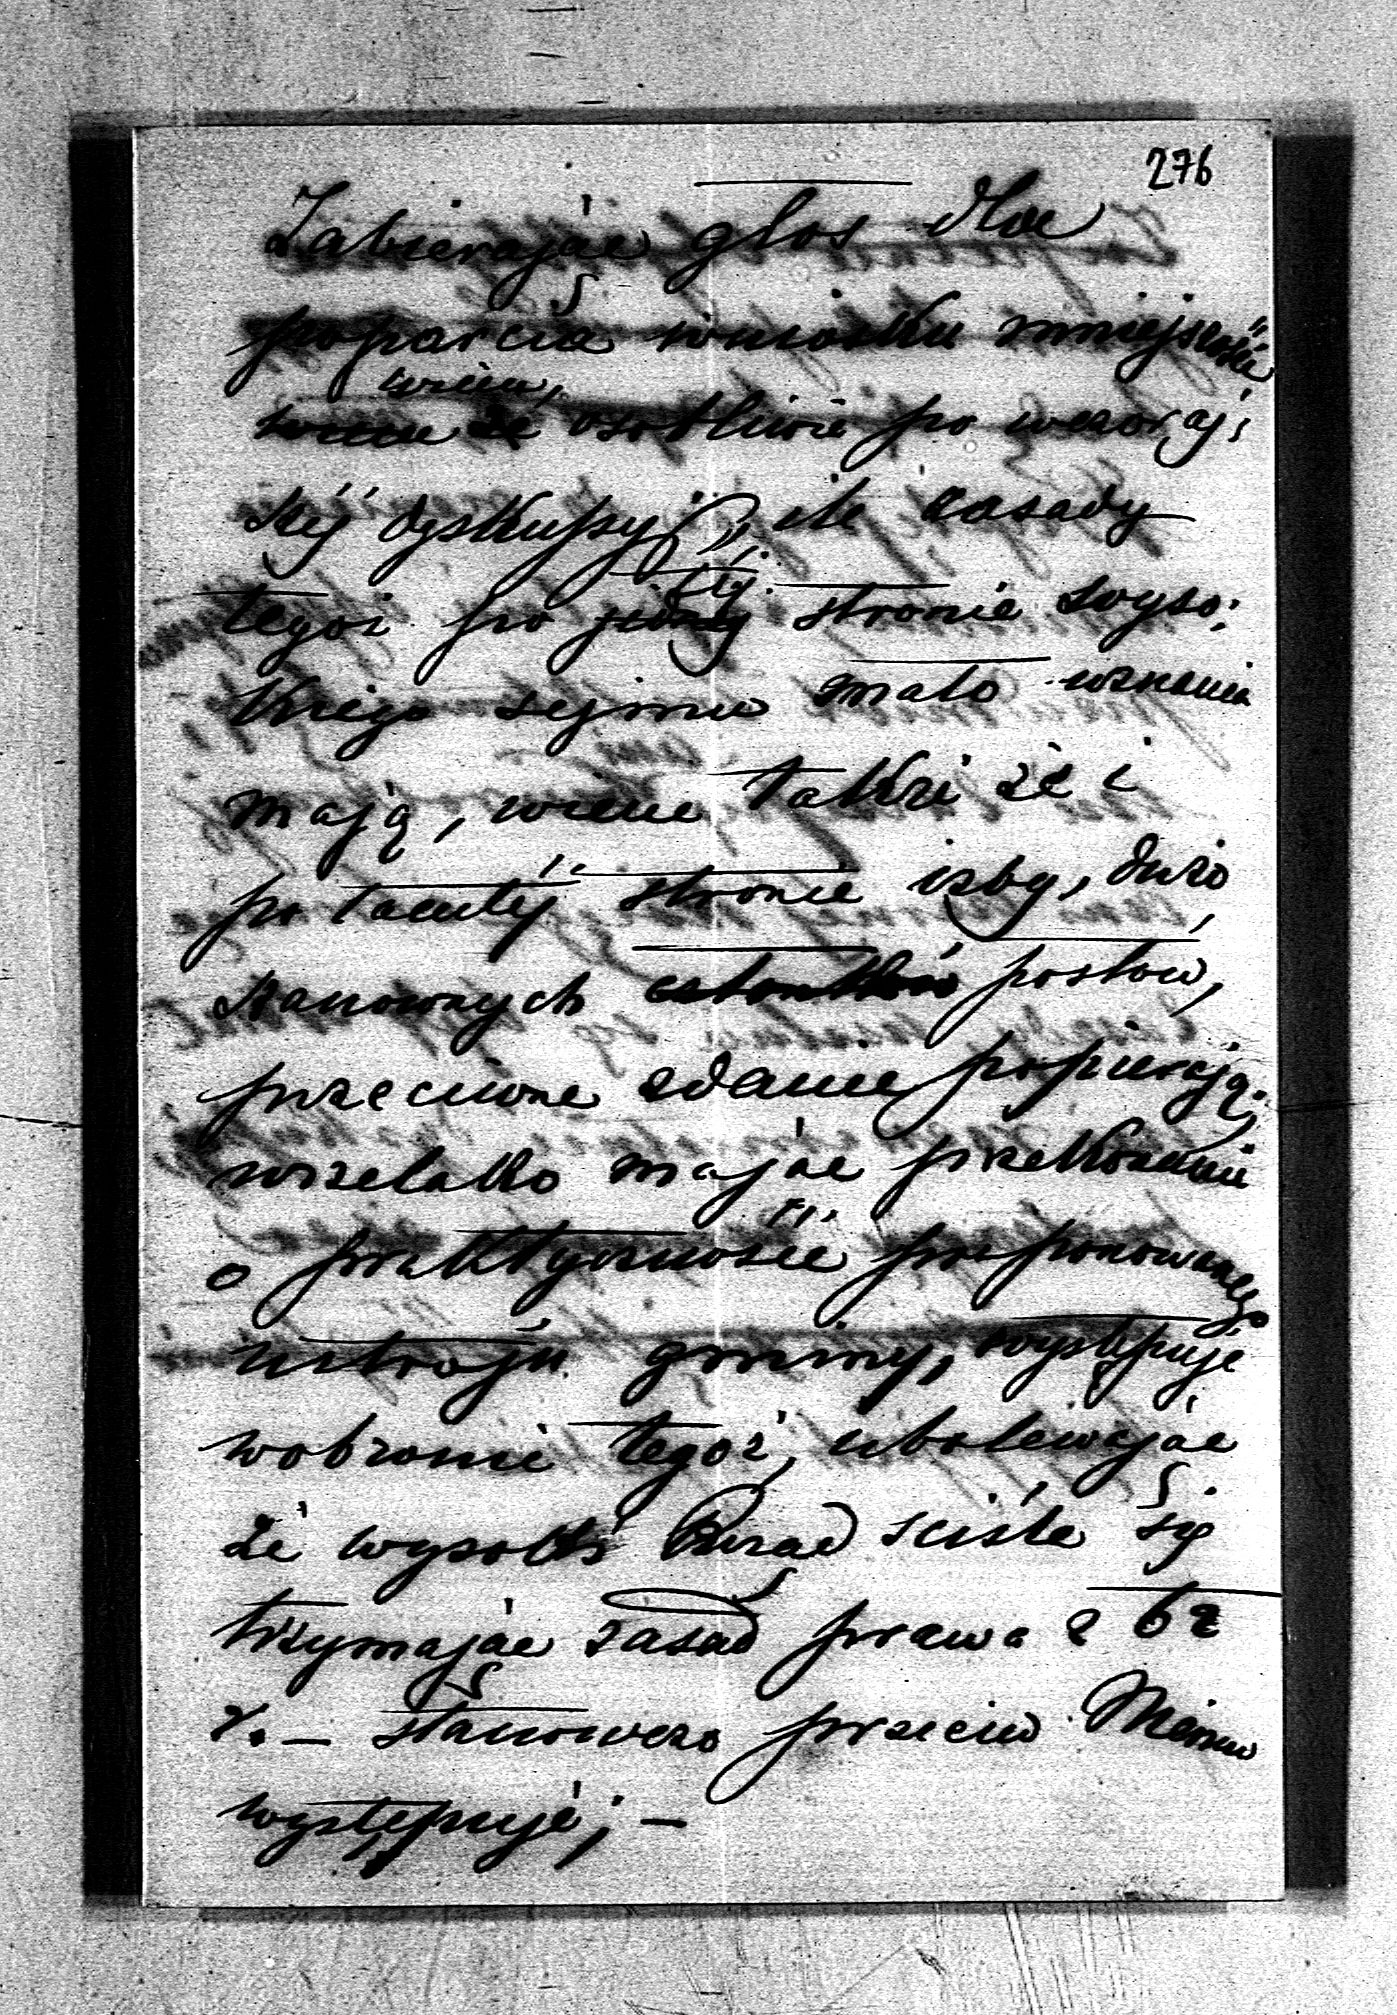 276
Zabierając głos dla
poparcia wniosku mniejszości
wiem,
wiem że osobliwie po wczoraj:
széj dyskussyi, ile zasady
téj
tegoż po jednéj stronie wyso:
kiego sejmu mało uznania
mają, wiem także że i
po tamtéj stronie izby, dużo
szanownych członków posłów,
przeciwne zdanie popierają;
wszelako mając przekonanie
o praktyczności proponowanego
ustroju gminy, występuję
w obronie tegoż, ubolewając
że wysoki Rząd ściśle się
trzymając zasad prawa z 62
r. — stanowczo przeciw
występuje; —